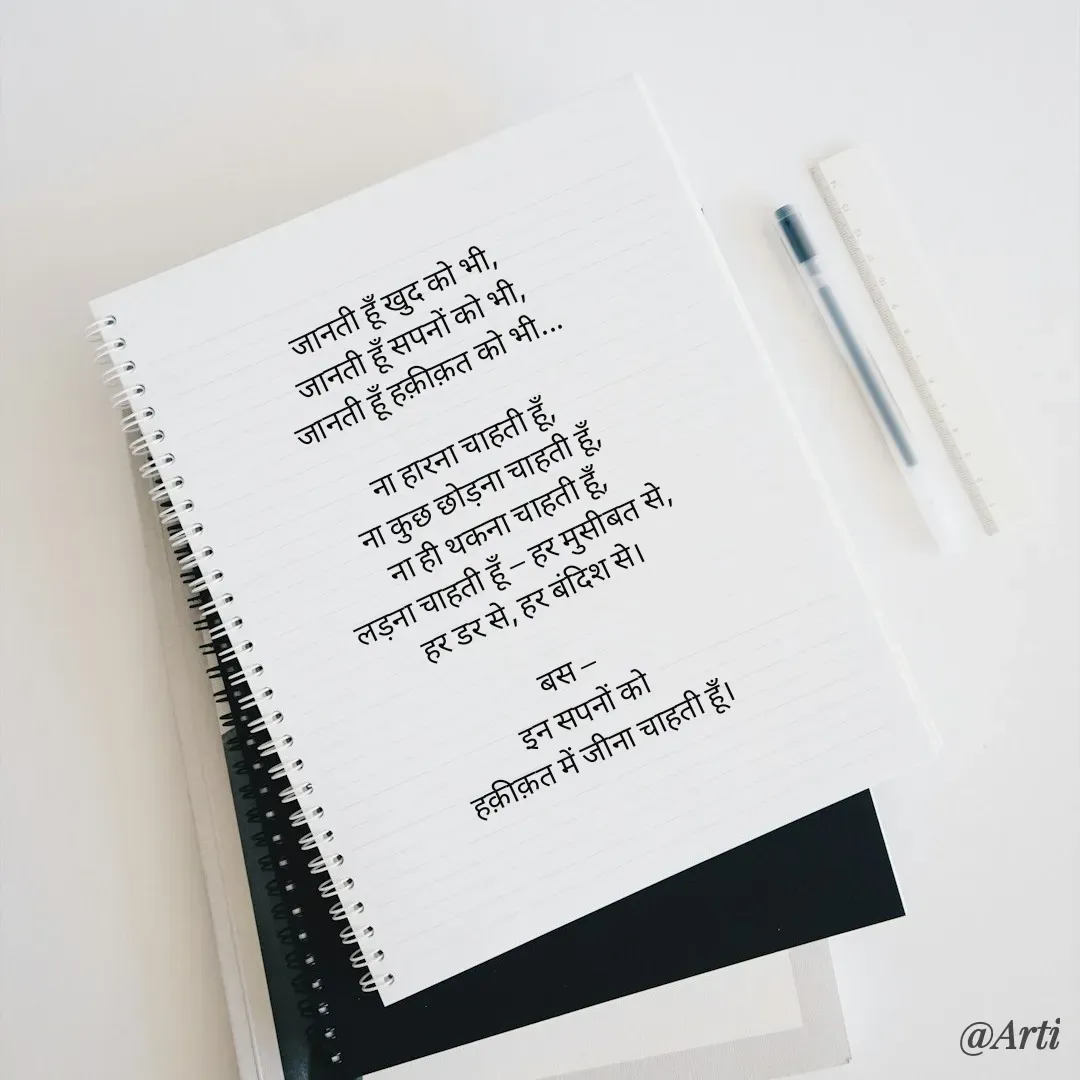 जानती हूँ खुद को भी,
जानती हूँ सपनों को भी,
जानती हूँ हक़ीक़त को भी...
ना हारना चाहती हूँ,
ना कुछ छोड़ना चाहती हूँ,
ना ही थकना चाहती हूँ,
लड़ना चाहती हूँ – हर मुसीबत से,
हर डर से, हर बंदिश से।
बस –
इन सपनों को
हक़ीक़त में जीना चाहती हूँ।
@Arti